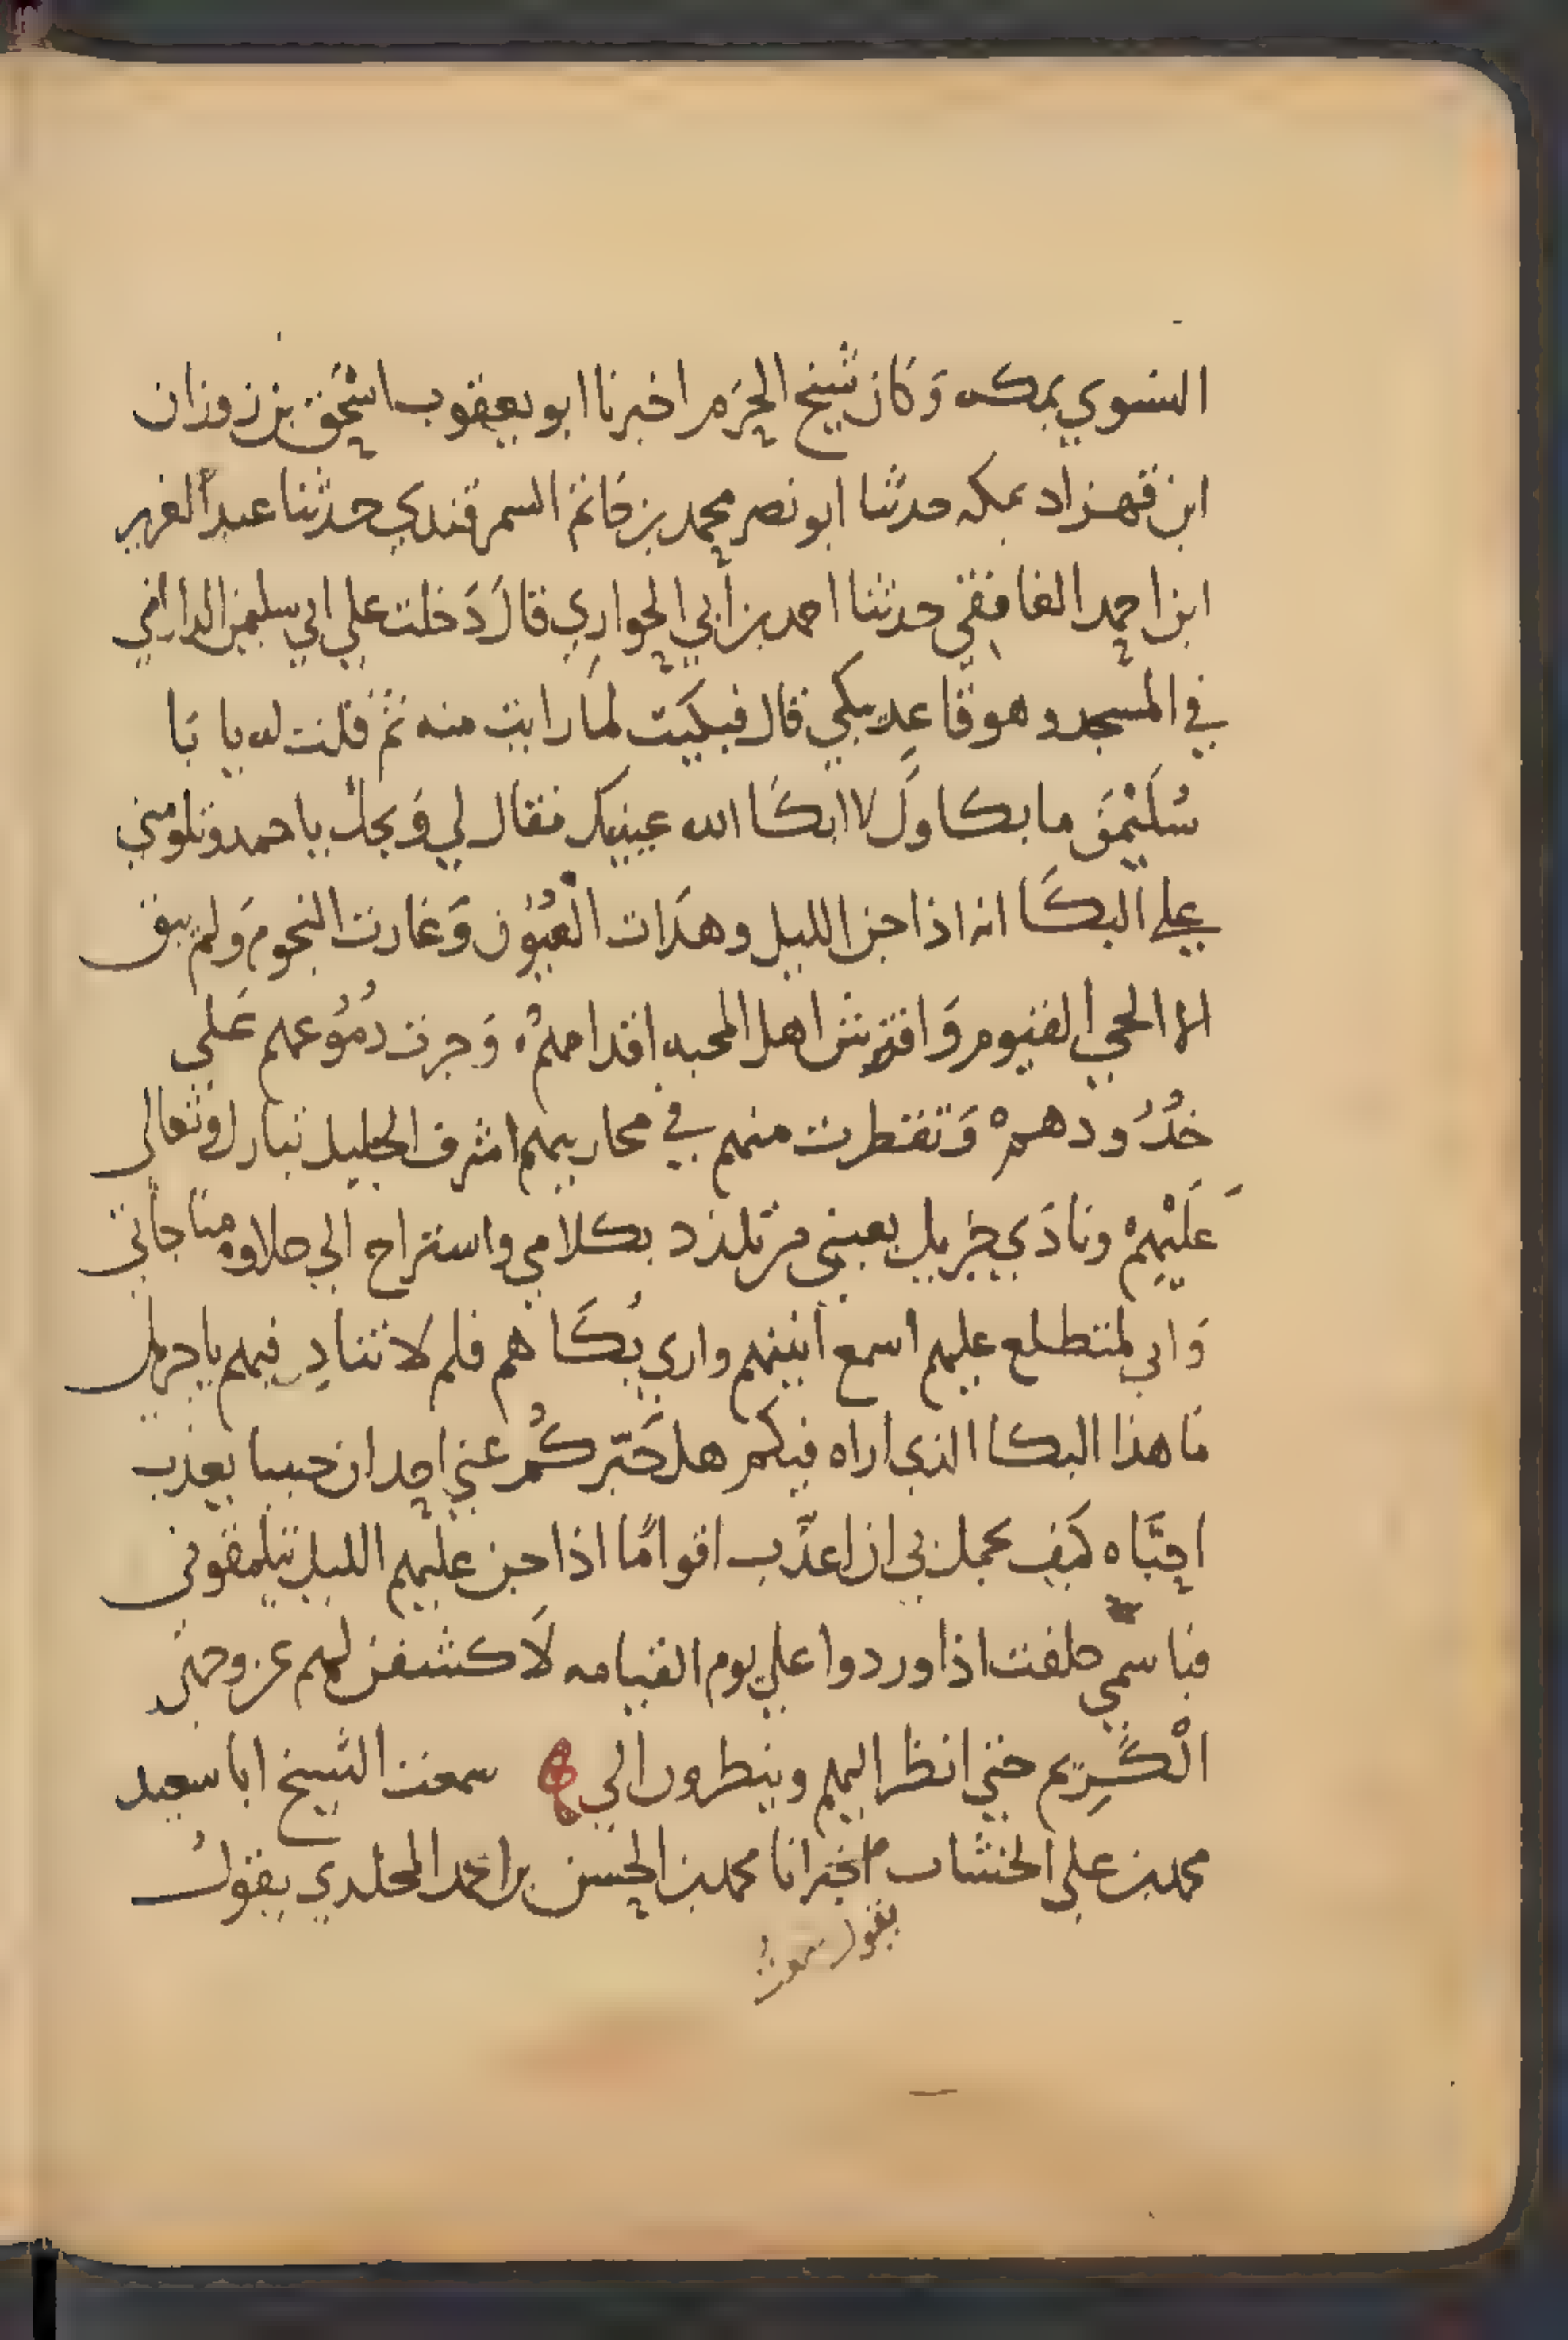 النسوي بمكه وَكان شيخ الحَرَم اخبرنا ابو يعقوب اسْحٰق بن زوزان
ابن قهزاد بمكه حدثنا ابو نصر محمد بن حَاتم السمرقندي حدثنا عبد العزيز
ابن احمد الغافقي حدثنا احمد بن أبي الحواري قالَ دَخلت علي ابي سليمن الداراني
في المسجد وهو قاعِد يبكي قال فبكيت لمَا رايت منه ثم قلت له يا بَا
سُلَيْمٰن ما بكاوك لا ابكَا الله عينيك فقال لي وَيحك ياحمد وتلومني
علي البكَا انه اذا جن الليل وهدَات الْعُيُون وَغارت النجوم وَلم يبق
الا الحي القيوم وَافترش اهل المحبه اقدامهُم وَجرت دُمُوعهم عَلي
خُدُودهمْ وَتقطرت منهم في محاريبهم اشرف الجليل تبارك وتعالي
عَلَيْهِمْ ونادَي جبريل بعيني من تلذد بكلامي واستراح الي حلاوه مناجاتي
وَاني لمتطلع عليهم اسمع انينهم واري بُكَاهم فلم لا تنادِ فيهم ياجبريل
مَا هذا البكا الذي اراه فيكم هل خَبّركُم عني احد ان حبيبا يعذب
احبَّاه كَيف يجمل بي ان اعذّب اقوامًا اذا جن عليهم الليل يتملقوني
فباسمي حلفت اذا وردوا علي يوم القيامه لَاكشفن لهم عن وجهي
الْكَرِيم حتي انظر اليهم وينظرون الي ه سمعت الشيخ ابا سعيد
محمد بن علي الخشاب اخبرنا محمد بن الحسن بن احمد المخلدي يقولُ
يقول